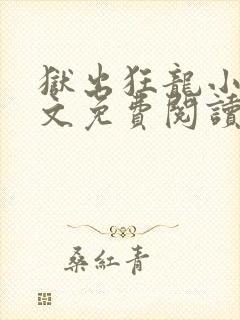 獄出狂龍小
文免費閱讀
桑紅青